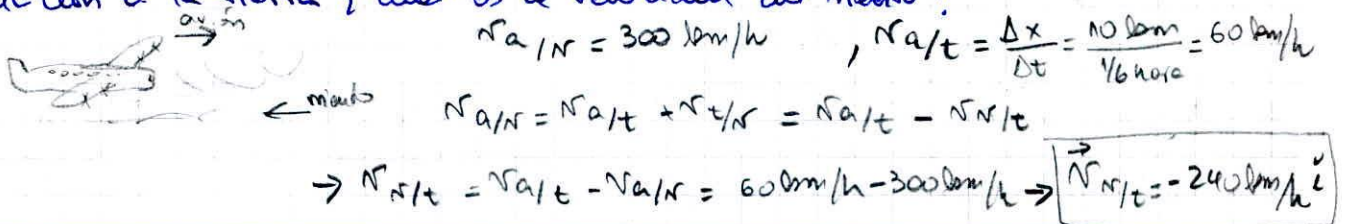 a la tierra y cual es la velocidad del viento.
avión → v a/v = 300 km/h , v a/t = Δx/Δt = 10 km / 1/6 hora = 60 km/h
← viento v a/v = v a/t + v t/v = v a/t - v v/t
→ v v/t = v a/t - v a/v = 60 km/h - 300 km/h → v⃗ v/t = -240 km/h ǐ